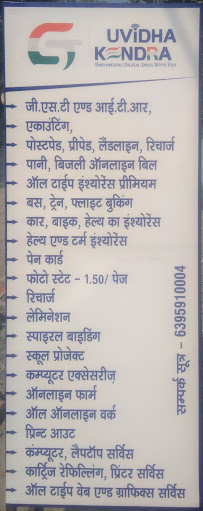 UVIDHA
KENDRA
EMPOWERING DIGITAL INDIA WITH YOU
जी.एस.टी एण्ड आई.टी.आर,
एकाउंटिंग,
पोस्टपेड, प्रीपेड, लैंडलाइन, रिचार्ज
पानी, बिजली ऑनलाइन बिल
ऑल टाईप इंश्योरेंस प्रीमियम
बस, ट्रेन, फ्लाइट बुकिंग
कार, बाइक, हेल्थ का इंश्योरेंस
हेल्थ एण्ड टर्म इंश्योरेंस
पेन कार्ड
फोटो स्टेट - 1.50/ पेज
रिचार्ज
लेमिनेशन
स्पाइरल बाइडिंग
स्कूल प्रोजेक्ट
कम्प्यूटर एक्सेसरीज़
ऑनलाइन फार्म
ऑल ऑनलाइन वर्क
प्रिन्ट आउट
कंम्प्यूटर, लैपटॉप सर्विस
कार्ट्रिज रेफिल्लिंग, प्रिंटर सर्विस
ऑल टाईप वेब एण्ड ग्राफिक्स सर्विस
सम्पर्क सूत्र - 6395910004